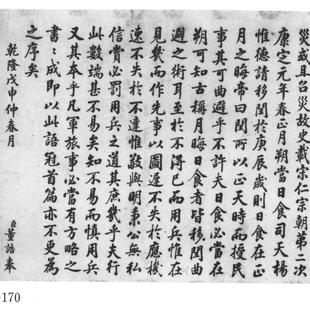 災或且召災故史載宋仁宗朝第二次
康定元年春正月朔當日食司天楊
惟德請移閏於庚辰歲則日食在正
月之晦帝曰閏所以正天時而授民
事其可曲避乎不許夫日食必當在
朔可知古稱月晦日食者皆移閏曲
避之術耳至於不得已而用兵惟在
見幾而作先事以圖遲不失於應機
速不失於不達惟斷與明秉公無私
信賞必罰用兵之道其庶幾乎夫行
此數端甚不易矣知不易而慎用兵
又其本乎凡軍旅事必當有方略之
書書成即以此語冠首篇亦不更為
之序矣
乾隆戊申仲春月
臣董誥奉
170